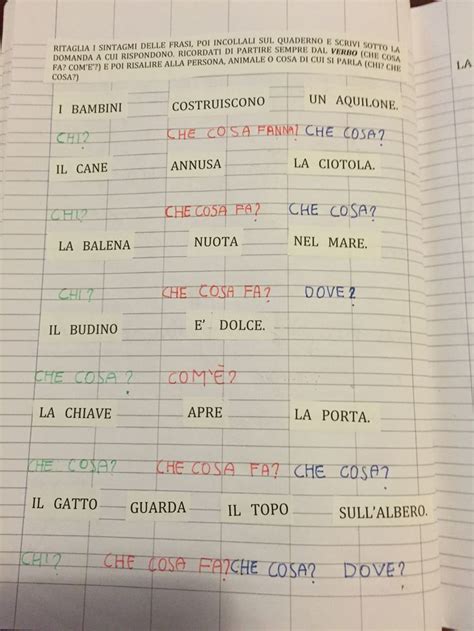 RITAGLIA I SINTAGMI DELLE FRASI, POI INCOLLALI SUL QUADERNO E SCRIVI SOTTO LA
DOMANDA A CUI RISPONDONO. RICORDATI DI PARTIRE SEMPRE DAL VERBO (CHE COSA
FA? COM'E'?) E POI RISALIRE ALLA PERSONA, ANIMALE O COSA DI CUI SI PARLA (CHI? CHE
COSA?)
LA
I BAMBINI COSTRUISCONO UN AQUILONE.
CHI? CHE COSA FANNO? CHE COSA?
IL CANE ANNUSA LA CIOTOLA.
CHI? CHE COSA FA? CHE COSA?
LA BALENA NUOTA NEL MARE.
CHI? CHE COSA FA? DOVE?
IL BUDINO E' DOLCE.
CHE COSA? COM'È?
LA CHIAVE APRE LA PORTA.
CHE COSA? CHE COSA FA? CHE COSA?
IL GATTO GUARDA IL TOPO SULL'ALBERO.
CHI? CHE COSA FA? CHE COSA? DOVE?